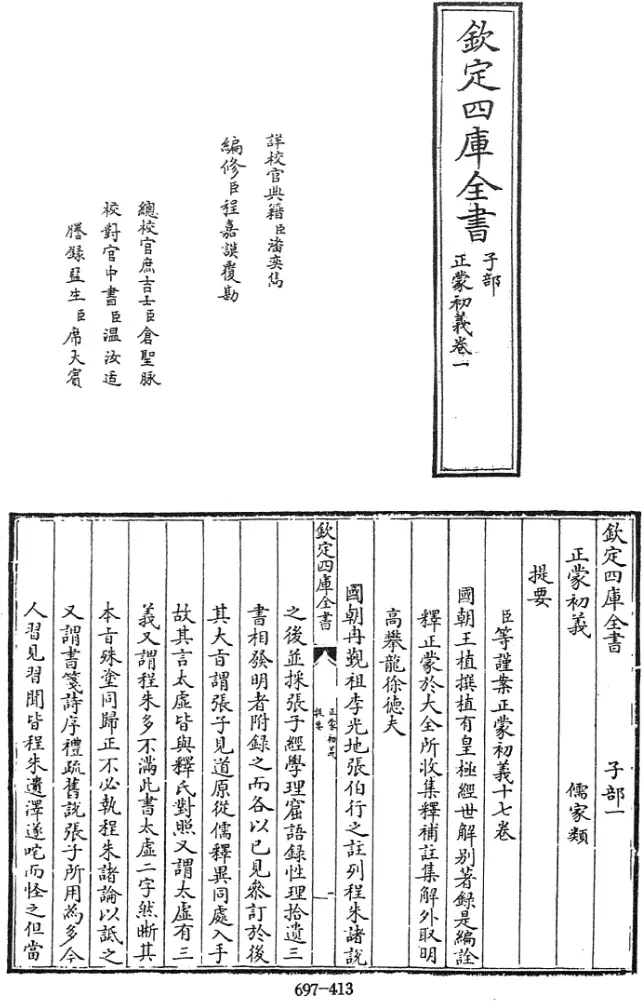 欽定四庫全書
子部
正蒙初義卷一
詳校官典籍臣潘奕雋
編修臣程嘉謨覆勘
總校官庶吉士臣倉聖脉
校對官中書臣溫汝适
謄錄監生臣席大賓
欽定四庫全書　子部一
正蒙初義　儒家類
提要
臣等謹案正蒙初義十七卷
國朝王植撰植有皇極經世解别著錄是編詮
釋正蒙於大全所收集釋補註集解外取明
高攀龍徐德夫
國朝冉覲祖李光地張伯行之註列程朱諸說
欽定四庫全書
正蒙初義
提要
一
之後並採張子經學理窟語錄性理拾遺三
書相發明者附錄之而各以已見叅訂於後
其大㫖謂張子見道原從儒釋異同處入手
故其言太虛皆與釋氏對照又謂太虛有三
義又謂程朱多不滿此書太虛二字然晰其
本㫖殊塗同歸正不必執程朱諸論以詆之
又謂書箋詩序禮疏舊說張子所用為多今
人習見習聞皆程朱遺澤遂咤而怪之但當
697-413